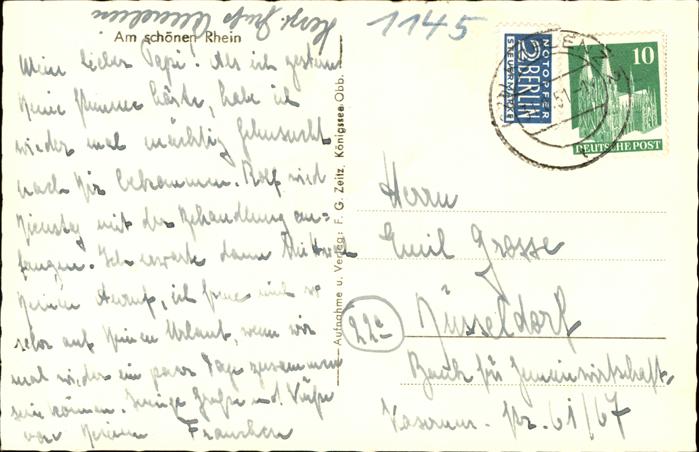 Herzl. Gruß
1145
Am schönen Rhein
Mein lieber Papi! Als ich gestern
Deine Stimme hörte, habe ich
wieder mal mächtig Sehnsucht
nach Dir bekommen. Rolf wird
Dienstag mit der Behandlung an-
fangen. Ich erwarte dann Mittwoch
Deinen Anruf, ich freue mich so
sehr auf Deinen Urlaub, wenn wir
mal wieder ein paar Tage zusammen
sein können. Innige Grüße und Küsse
von Deinem Frauchen
Aufnahme u. Verlag: F. G. Zeitz, Königssee Obb.
NOTOPFER
2 BERLIN
STEUERMARKE
10
DEUTSCHE POST
Herrn
Emil Grosse
22a
Düsseldorf
Bank für Gemeinwirtschaft
Kasernenstr. 61/67